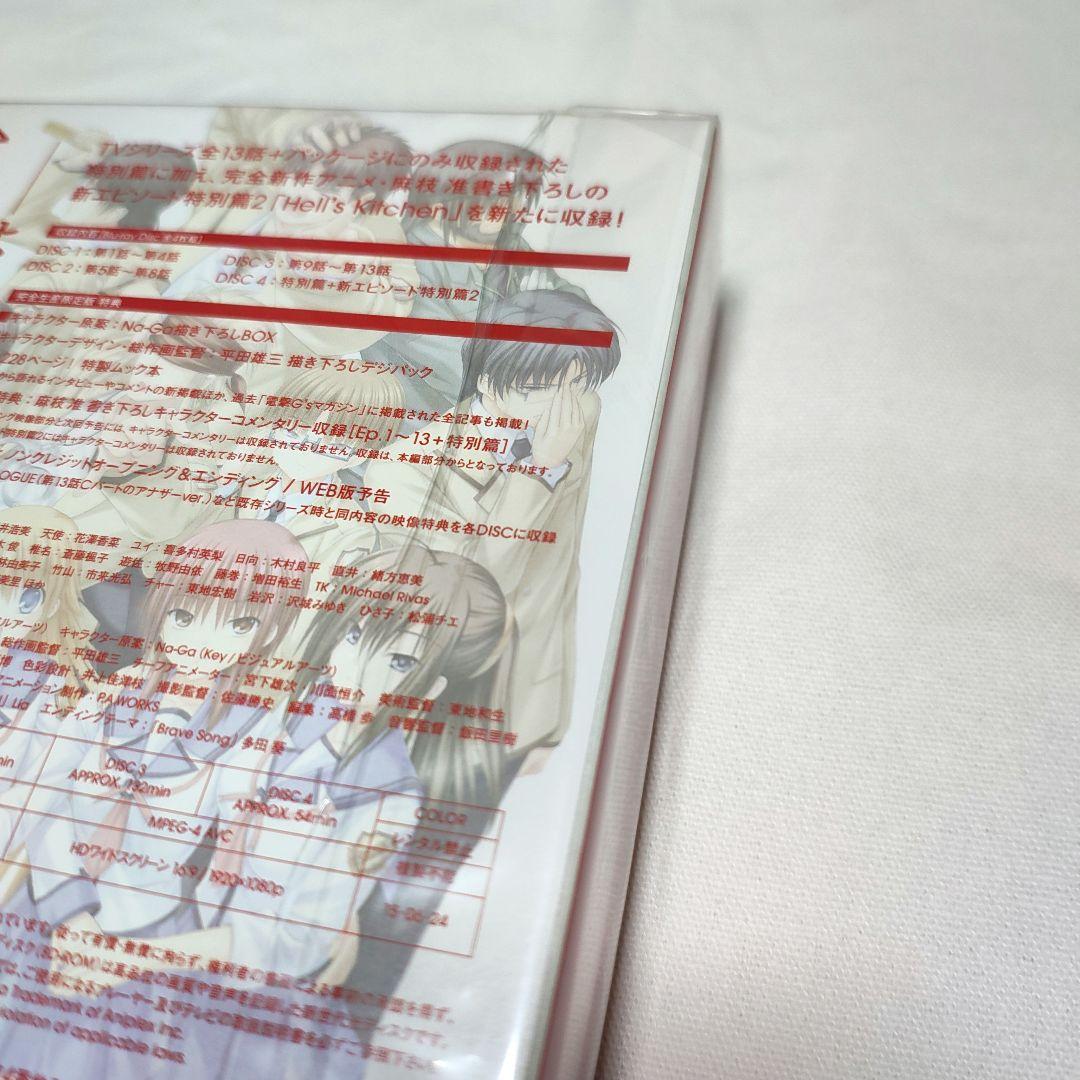 TVシリーズ全13話+パッケージにのみ収録された
特別篇に加え、完全新作アニメ・麻枝 准書き下ろしの
新エピソード特別篇2「Hell's Kitchen」を新たに収録!
収録内容[Blu-ray Disc 全4枚組]
DISC 1:第1話〜第4話 DISC 3:第9話〜第13話
DISC 2:第5話〜第8話 DISC 4:特別篇+新エピソード特別篇2
完全生産限定版 特典
キャラクター原案:Na-Ga描き下ろしBOX
キャラクターデザイン・総作画監督:平田雄三 描き下ろしデジパック
228ページ! 特製ムック本
から語れるインタビューやコメントの新掲載ほか、過去「電撃G'sマガジン」に掲載された全記事も掲載!
特典:麻枝 准 書き下ろしキャラクターコメンタリー収録[Ep.1〜13+特別篇]
ング映像部分と次回予告には、キャラクターコメンタリーは収録されておりません。収録は、本編部分からとなっております。
特別篇2にはキャラクターコメンタリーは収録されておりません。
ノンクレジットオープニング&エンディング / WEB版予告
OGUE(第13話Cパートのアナザーver.)など既存シリーズ時と同内容の映像特典を各DISCに収録
井浩美 天使:花澤香菜 ユイ:喜多村英梨 日向:木村良平 直井:緒方恵美
木 俊 椎名:斎藤楓子 遊佐:牧野由依 藤巻:増田裕生 TK:Michael Rivas
林由美子 竹山:市来光弘 チャー:東地宏樹 岩沢:沢城みゆき ひさ子:松浦チエ
美里 ほか
ルアーツ) キャラクター原案:Na-Ga (Key/ビジュアルアーツ)
総作画監督:平田雄三 チーフアニメーター:宮下雄次 川面恒介 美術監督:東地和生
博 色彩設計:井上佳津枝 撮影監督:佐藤勝史 編集:髙橋 歩 音響監督:飯田里樹
アニメーション制作:P.A.WORKS
Lia エンディングテーマ:「Brave Song」多田 葵
min DISC 3 DISC 4 COLOR
APPROX. 132min APPROX. 54min
MPEG-4 AVC レンタル禁止
HDワイドスクリーン 16:9 / 1920×1080p 複製不能
15・06・24
Trademark of Aniplex Inc.
violation of applicable laws.